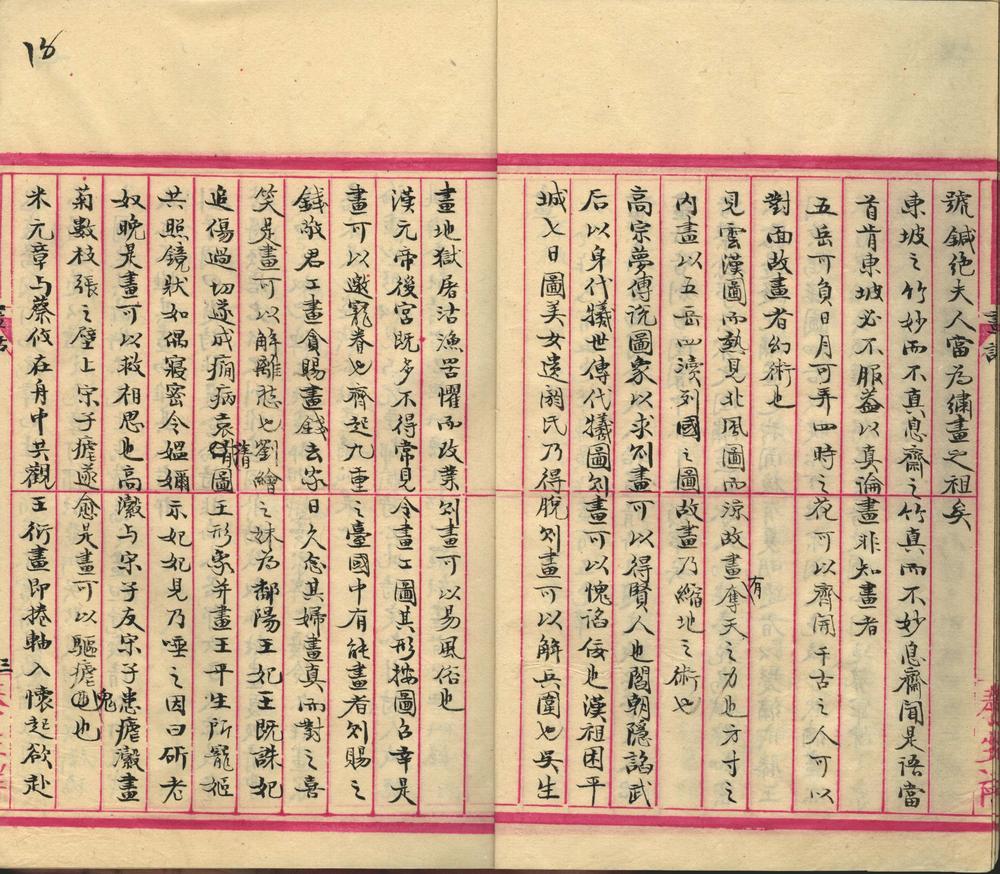 號鍼絕夫人當為繡畫之祖矣
東坡之竹妙而不真息齋之竹真而不妙息齋聞是語當
首肯東坡必不服葢以真論畫非知畫者
五岳可負日月可弄四時之花可以齊開千古之人可以
對面故畫者幻術也
見雲漢圖而熱見北風圖而涼故畫有奪天之功也方寸之
內畫以五岳四瀆列國之圖故畫乃縮地之術也
高宗夢傅說圖象以求則畫可以得賢人也閻朝隱諂武
后以身代犧世傳代犧圖則畫可以愧諂佞也漢祖困平
城七日圖美女遺閼氏乃得脫則畫可以解兵圍也吳生
畫地獄屠沽漁罟懼而改業則畫可以易風俗也
漢元帝後宮既多不得常見令畫工圖其形按圖召幸是
畫可以邀寵眷也齊起九重之臺國中有能畫者則賜之
錢敬君工畫貪賜畫錢去家日久念其婦畫真而對之喜
笑是畫可以解離愁也劉繪之妹為鄱陽王妃王既誅妃
追傷過切遂成痼病袁蒨圖王形象并畫王平生所寵姬
共照鏡狀如偶寢密令媼嬭示妃妃見乃唾之因曰斫老
奴晚是畫可以救相思也高瀔与宋子友宋子患瘧瀔畫
菊數枝張之壁上宋子瘧遂愈是畫可以驅瘧鬼也
米元章与蔡攸在舟中共觀王衍畫即捲軸入懷起欲赴
三
18